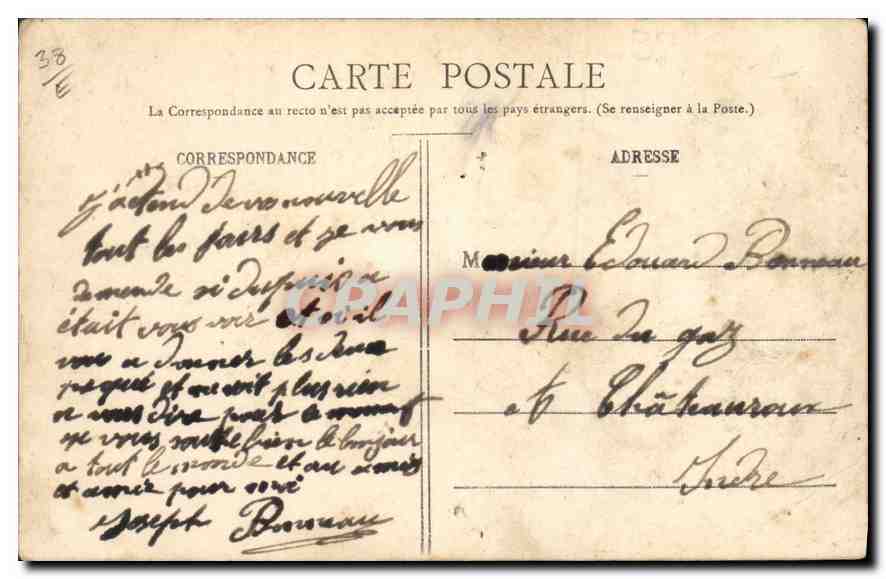 38
E
CARTE POSTALE
La Correspondance au recto n'est pas acceptée par tous les pays étrangers. (Se renseigner à la Poste.)
CORRESPONDANCE
ADRESSE
j'attend de vos nouvelle
tout les jours et je vous
demande si dupuis a
était vous voir et s'il
vous a donner les deux
paqué et ne voit plus rien
a vous dire pour le moment
je vous souhte bien le bonjour
a tout le monde et au amis
et amie pour moi
Joseph Bonneau
Monsieur Edouard Bonneau
Rue du gaz
Châteauroux
Indre
CPAPHIL